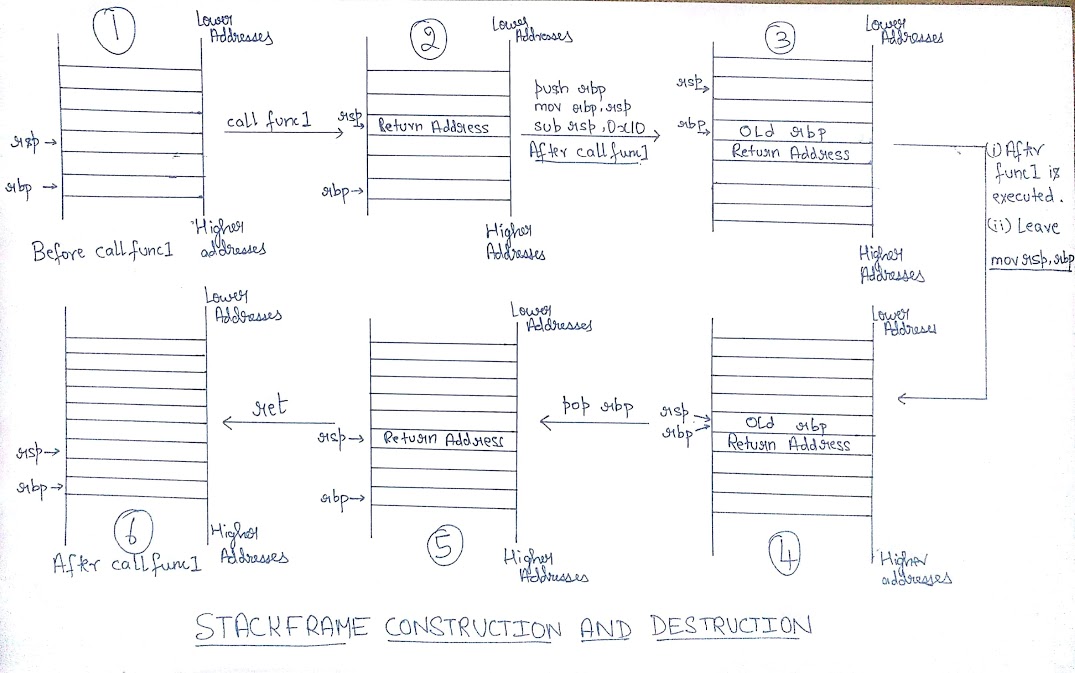 1
Lower
Addresses
rsp →
rbp →
Higher
addresses
Before call func1
call func1
2
Lower
Addresses
rsp
Return Address
rbp →
Higher
Addresses
push rbp
mov rbp, rsp
sub rsp, 0x10
After call func1
3
Lower
Addresses
rsp
rbp
OLd rbp
Return Address
Higher
Addresses
(i) After
func1 is
executed.
(ii) Leave
mov rsp, rbp
4
Lower
Addresses
rsp
rbp
OLd rbp
Return Address
Higher
addresses
pop rbp
5
Lower
Addresses
rsp →
Return Address
rbp →
Higher
Addresses
ret
6
Lower
Addresses
rsp →
rbp →
Higher
Addresses
After call func1
STACKFRAME CONSTRUCTION AND DESTRUCTION